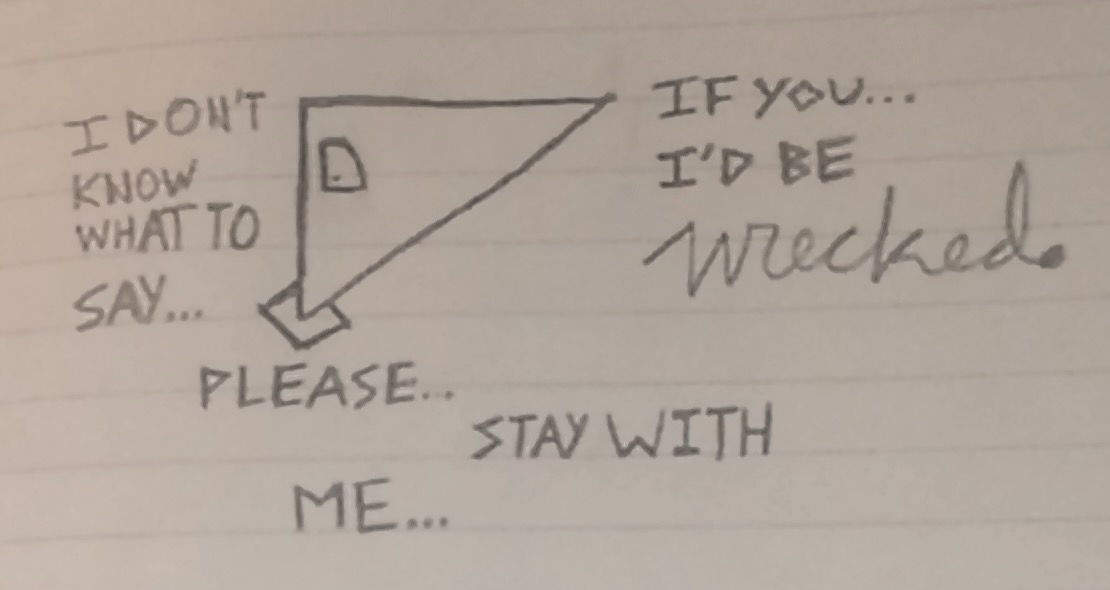 I DON'T
KNOW
WHAT TO
SAY...
IF YOU...
I'D BE
Wrecked.
PLEASE...
STAY WITH
ME...